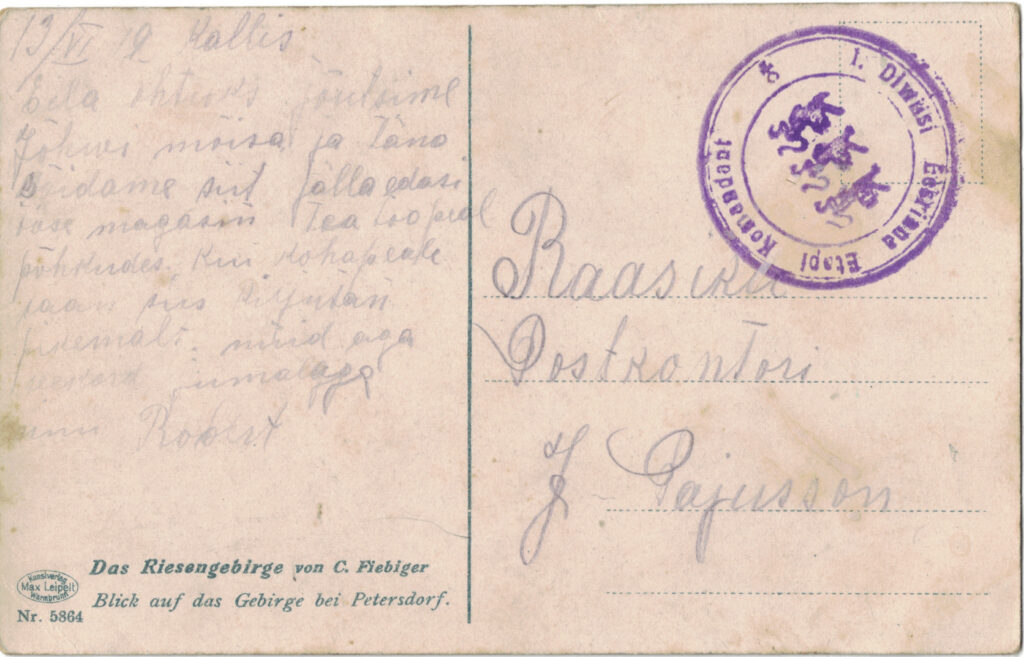 13/VI 19 Kallis
Eila õhtuks jõutsime
Jõhwi mõisa ja täna
Sõidame siit jälla edasi
öse magasin Tea loopeal
põhkudes, kui kohapeale
jaan siis kirjutan
pikemalt. nüüd aga
jumalaga
Robert
Das Riesengebirge von C. Fiebiger
Blick auf das Gebirge bei Petersdorf.
Kunstverlag
Max Leipelt
Warmbrunn
Nr. 5864
I. Diwiisi Eeskinna Etapi Komandant
Raasiku
Postkontori
J Pajusson